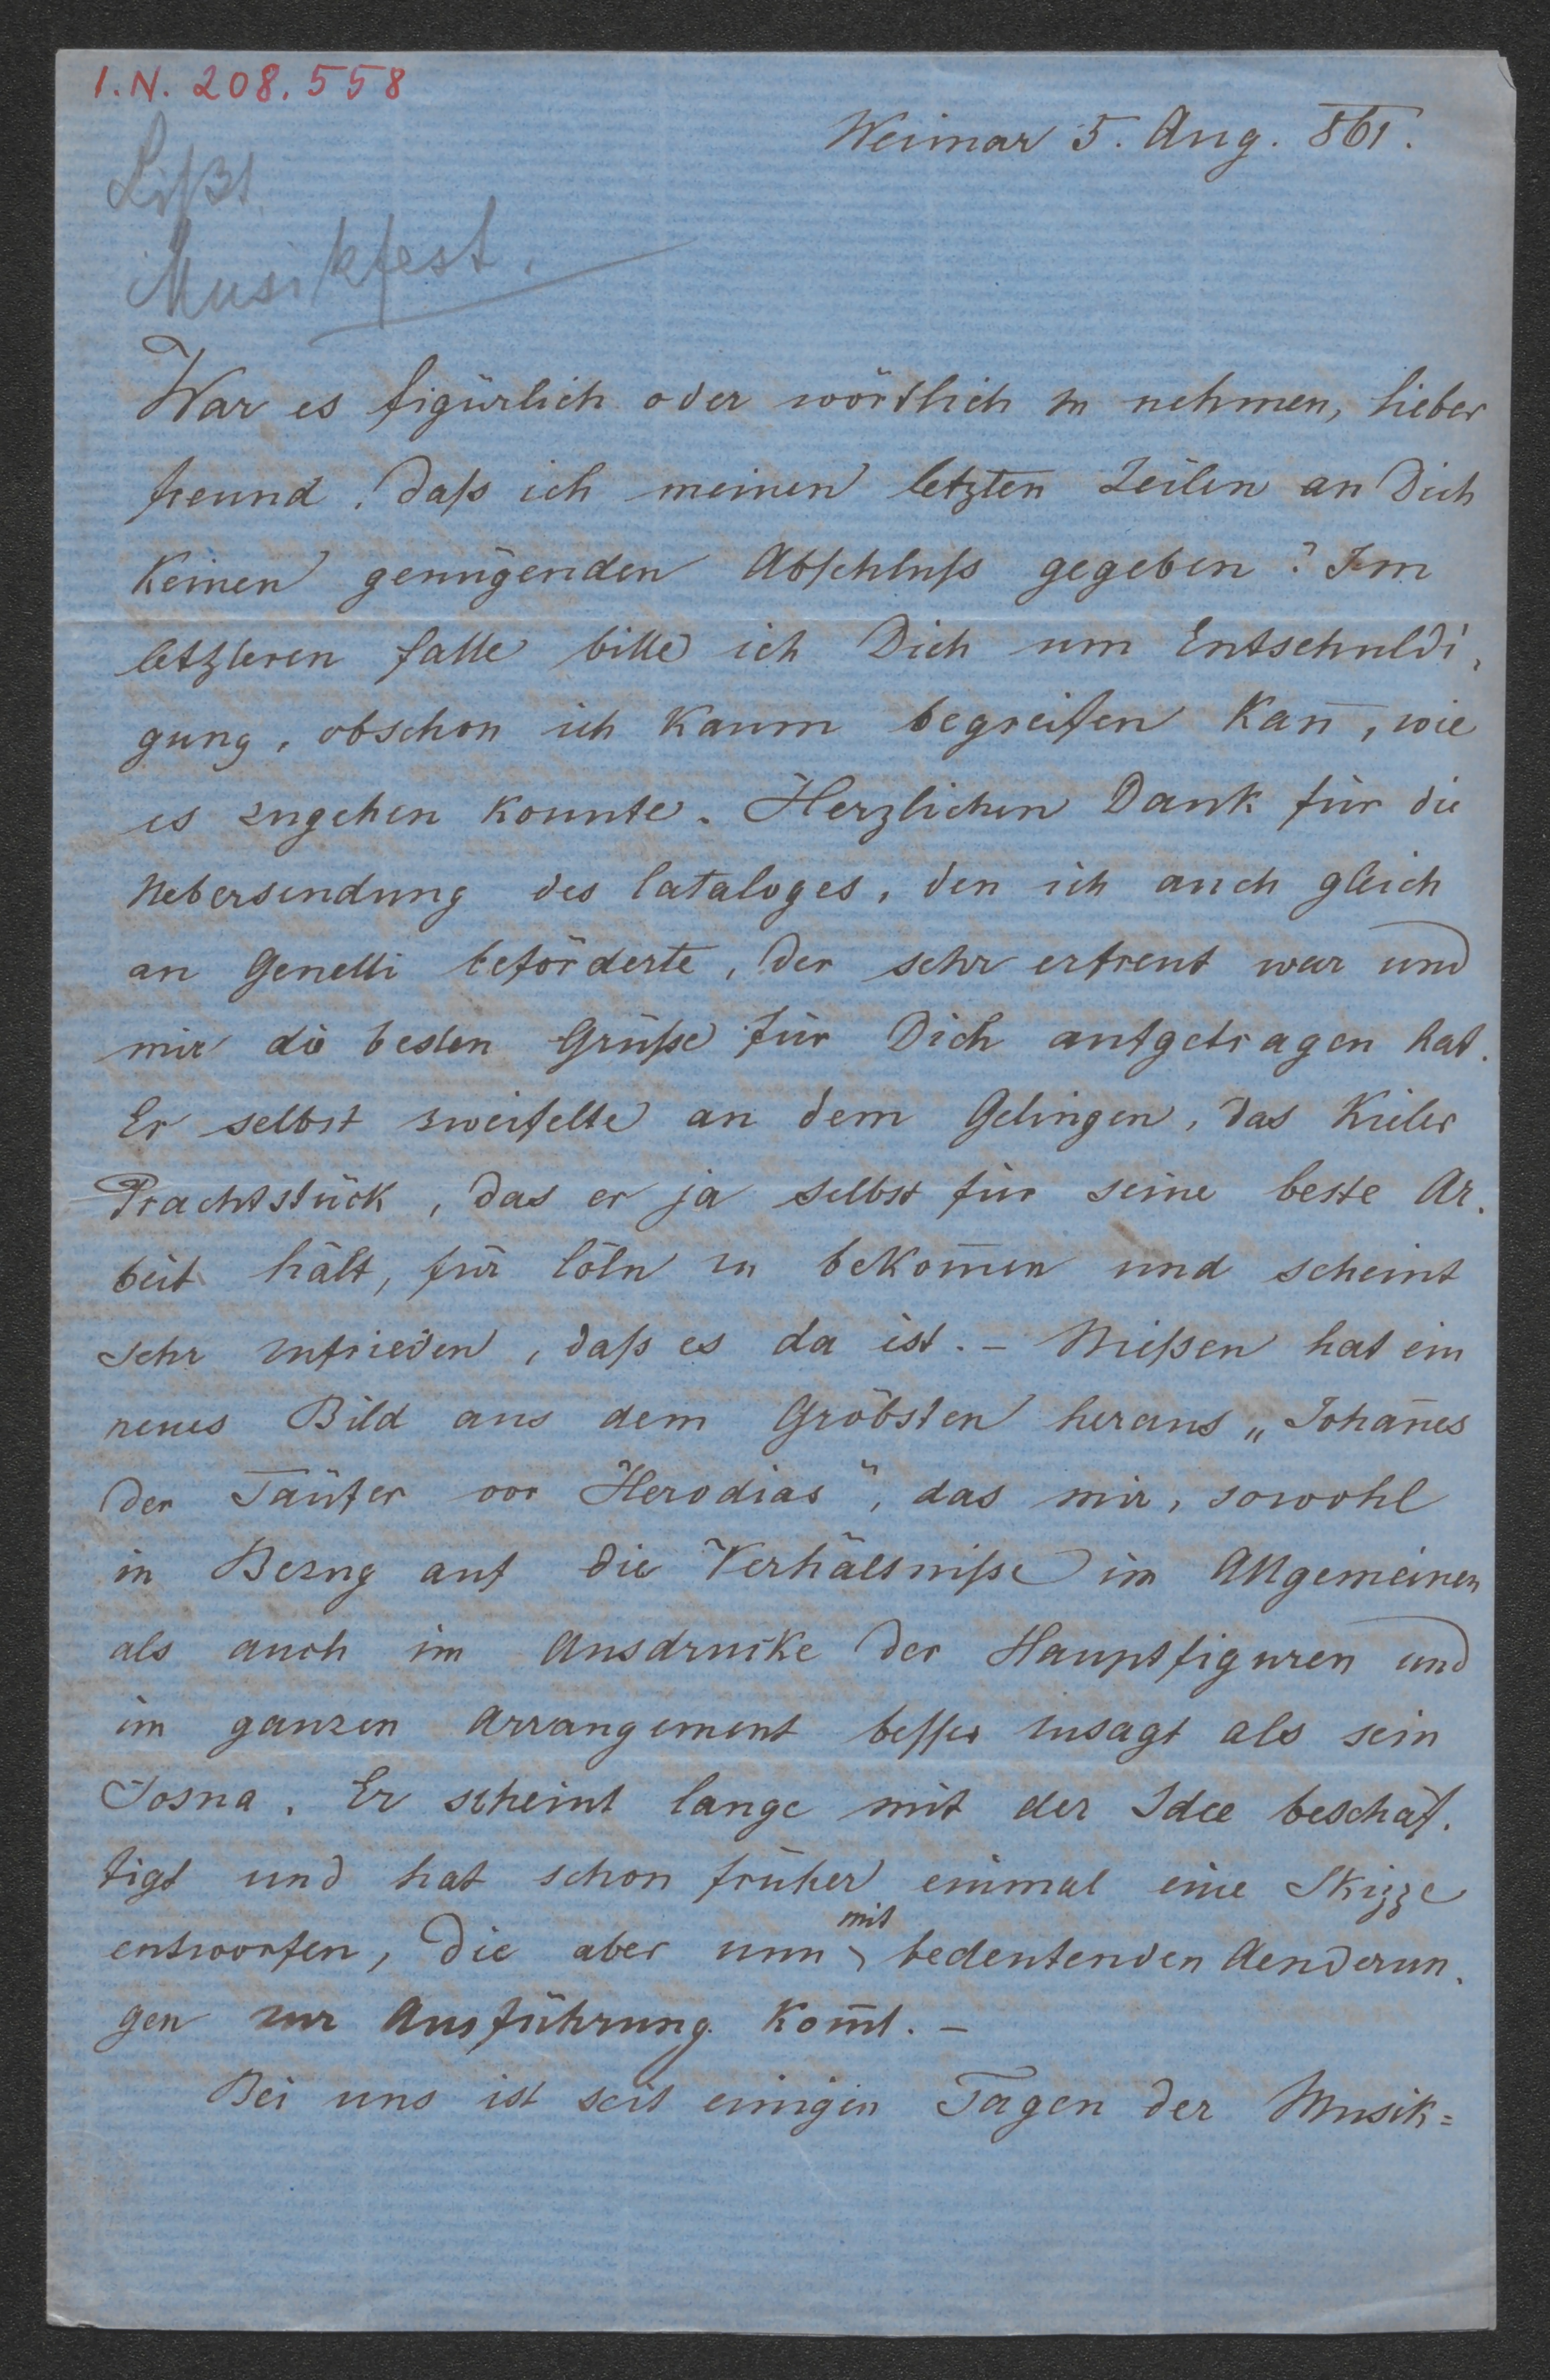 I.N. 208.558
Weimar 5. Aug. 861.
Lißt
Musikfest.
War es figürlich oder wörtlich zu nehmen, lieber
Freund, daß ich meinen letzten Zeilen an Dich
keinen genügenden Abschluß gegeben? Im
letzteren Falle bitte ich Dich um Entschuldi-
gung, obschon ich kaum begreifen kan̄, wie
es zugehen konnte. Herzlichen Dank für die
Uebersendung des Cataloges, den ich auch gleich
an Genelli beförderte, der sehr erfreut war und
mir die besten Grüße für Dich aufgetragen hat.
Er selbst zweifelte an dem Gelingen, das Kieler
Prachtstück, das er ja selbst für seine beste Ar-
beit hält, für Cöln zu bekom̄en und scheint
sehr zufrieden, daß es da ist. – Nießen hat ein
neues Bild aus dem Gröbsten heraus „Johan̄es
der Täufer vor Herodias", das mir, sowohl
in Bezug auf die Verhältniße im Allgemeinen
als auch im Ausdrucke der Hauptfiguren und
im ganzen Arrangement besser zusagt als sein
Josua. Er scheint lange mit der Idee beschäf-
tigt und hat schon früher einmal eine Skizze
entworfen, die aber nun mit bedeutenden Aenderun-
gen zur Ausführung kom̄t. –
Bei uns ist seit einigen Tagen der Musik=